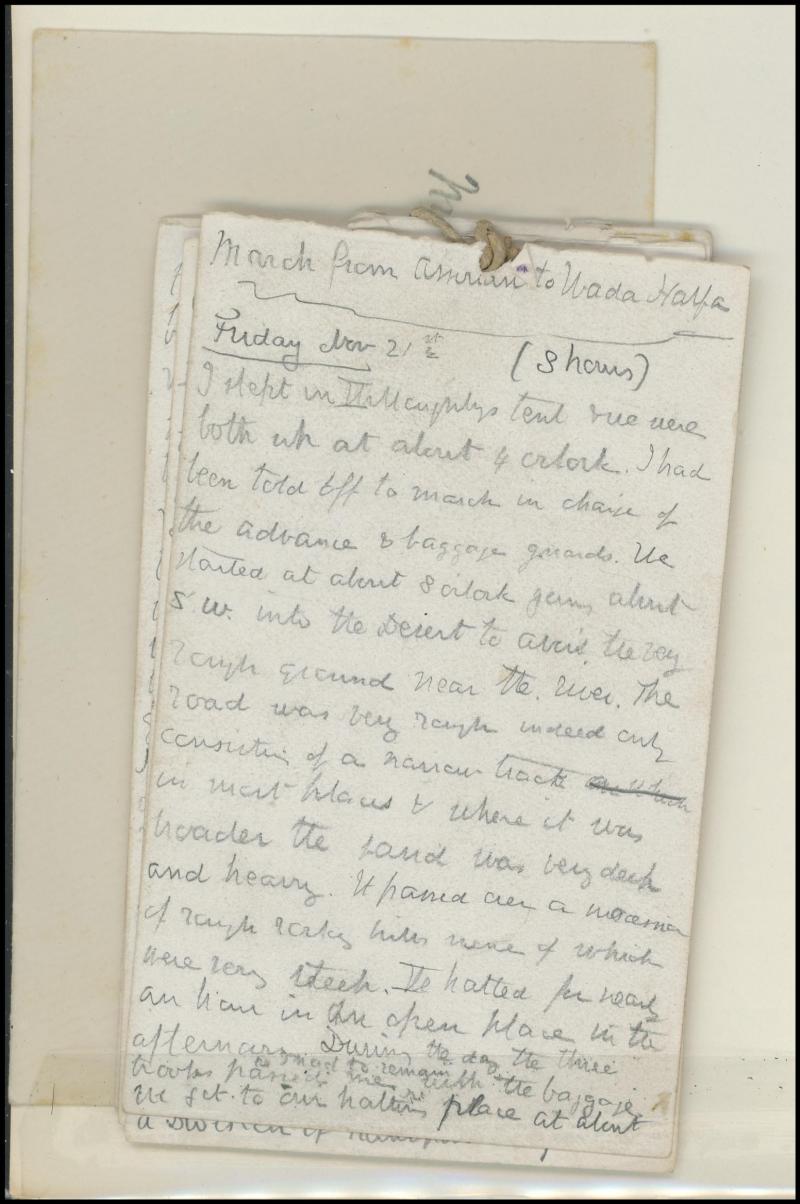 March from Assouan to Wada Halfa
Friday Nov 21st (8 hours)
I slept in Willoughbys tent & we were
both up at about 4 oclock. I had
been told off to march in charge of
the advance & baggage guards. We
started at about 8 oclock going about
S.W. into the Desert to avoid the very
rough ground near the river. The
road was very rough indeed only
consisting of a narrow track
in most places & where it was
broader the sand was very deep
and heavy. It passed over a succession
of rough rocky hills none of which
were very steep. We halted for nearly
an hour in an open place in the
afternoon. During the day the three
troops passed me
as I had to remain with the baggage.
We got to our halting place at about
a Division of